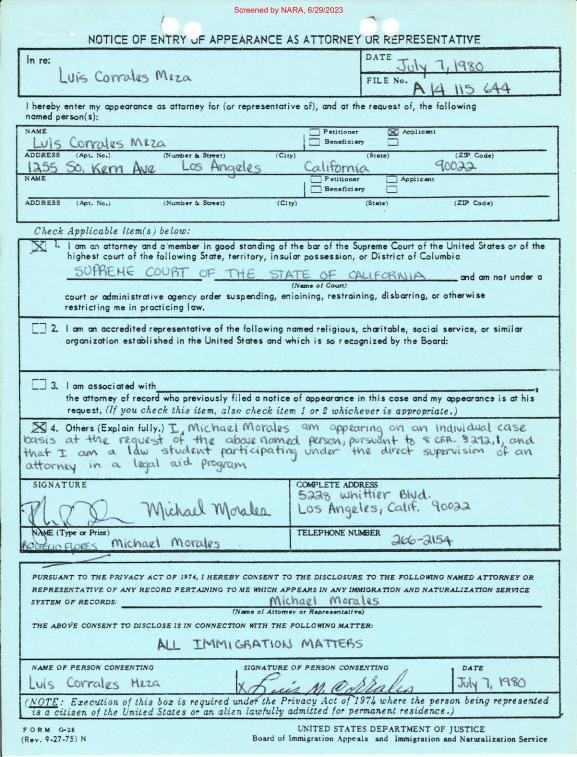 Screened by NARA, 6/29/2023
NOTICE OF ENTRY OF APPEARANCE AS ATTORNEY OR REPRESENTATIVE
In re:
Luis Corrales Meza
DATE July 7, 1980
FILE No. A 14 115 644
I hereby enter my appearance as attorney for (or representative of), and at the request of, the following
named person(s):
NAME Petitioner Applicant
Luis Corrales Meza Beneficiary
ADDRESS (Apt. No.) (Number & Street) (City) (State) (ZIP Code)
1255 So. Kern Ave Los Angeles California 90022
NAME Petitioner Applicant
Beneficiary
ADDRESS (Apt. No.) (Number & Street) (City) (State) (ZIP Code)
Check Applicable Item(s) below:
1. I am an attorney and a member in good standing of the bar of the Supreme Court of the United States or of the
highest court of the following State, territory, insular possession, or District of Columbia
SUPREME COURT OF THE STATE OF CALIFORNIA and am not under a
(Name of Court)
court or administrative agency order suspending, enjoining, restraining, disbarring, or otherwise
restricting me in practicing law.
2. I am an accredited representative of the following named religious, charitable, social service, or similar
organization established in the United States and which is so recognized by the Board:
3. I am associated with ,
the attorney of record who previously filed a notice of appearance in this case and my appearance is at his
request. (If you check this item, also check item 1 or 2 whichever is appropriate.)
4. Others (Explain fully.) I, Michael Morales am appearing on an individual case
basis at the request of the above named person, pursuant to 8 CFR. § 292.1, and
that I am a law student participating under the direct supervision of an
attorney in a legal aid program
SIGNATURE
Michael Morales
COMPLETE ADDRESS
5228 Whittier Blvd.
Los Angeles, Calif. 90022
NAME (Type or Print)
ROGELIO FLORES Michael Morales
TELEPHONE NUMBER
266-2154
PURSUANT TO THE PRIVACY ACT OF 1974, I HEREBY CONSENT TO THE DISCLOSURE TO THE FOLLOWING NAMED ATTORNEY OR
REPRESENTATIVE OF ANY RECORD PERTAINING TO ME WHICH APPEARS IN ANY IMMIGRATION AND NATURALIZATION SERVICE
SYSTEM OF RECORDS: Michael Morales
(Name of Attorney or Representative)
THE ABOVE CONSENT TO DISCLOSE IS IN CONNECTION WITH THE FOLLOWING MATTER:
ALL IMMIGRATION MATTERS
NAME OF PERSON CONSENTING SIGNATURE OF PERSON CONSENTING DATE
Luis Corrales Meza X Luis M. Corrales July 7, 1980
(NOTE: Execution of this box is required under the Privacy Act of 1974 where the person being represented
is a citizen of the United States or an alien lawfully admitted for permanent residence.)
FORM G-28 UNITED STATES DEPARTMENT OF JUSTICE
(Rev. 9-27-75) N Board of Immigration Appeals and Immigration and Naturalization Service